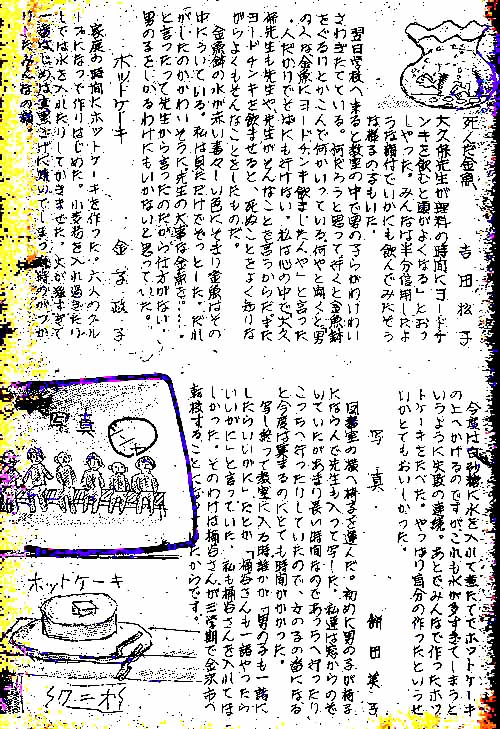 死んだ金魚
吉田松子
大久保先生が理科の時間にヨードチ
ンキを飲むと頭がよくなる」とおっ
しゃった。みんなは半分信用したよ
うな顔付でいかにも飲んでみたそう
な様子の子もいた。
翌日学校へ来ると教室の中で男の子らがわいわい
さわぎたてている。何だろうと思って行くと金魚鉢
をぐるりとかこんで何かいっている何やと聞くと男
の人な金魚にヨードチンキ飲ましたんや」と言った
人だかりでそばにも行けない。私は心の中で大久
保先生も先生や、先生がそんなことを言うからだまた
ヨードチンキを飲ませると、死ぬことをよく知りな
がらよくもそんなことをしたものだ。
金魚鉢の水が赤い毒々しい色にそまり金魚はその
中にういている。私は見ただけでぞっとした。だれ
がしたのかかわいそうに先生の大事な金魚を……
と言ったって先生から言ったのだから仕方がない
男の子をしかるわけにもいかないと思っていた。
ホットケーキ
金子政子
家庭の時間にホットケーキを作った。六人のグル
ープになって作りはじめた。小麦粉を入れ過ぎたり
しては水を入れたりしてかきまぜた。火が強すぎて
一番はじめは真黒こげに焼いてしまった
今度は白砂糖に水を入れて煮たててホットケーキ
の上へかけるのですがこれも水が多すぎてしまうと
いうように失敗の連続。あとでみんなで作ったホッ
トケーキをたべた。やっぱり自分の作ったというせ
いかとてもおいしかった。
写真
餅田美子
図書室の横へ椅子を運んだ。初めに男の子が椅子
にならんで先生も入って写した。私達は窓からのぞ
いていたがあまり長い時間なのであっちへ行ったり
こっちへ行ったりしていたので、女の子の番になる
と今度は集まるのにとても時間がかかった。
写し終って教室に入る時誰かが「男の子も一緒に
したらいいかに」とか「桶谷さんも一諸やったら
いいかに」と言っていた。私も桶谷さんを入れてほ
しかった。そのわけは桶谷さんが三学期で金沢市へ
転校することに
からです。
写真
ホットケーキ